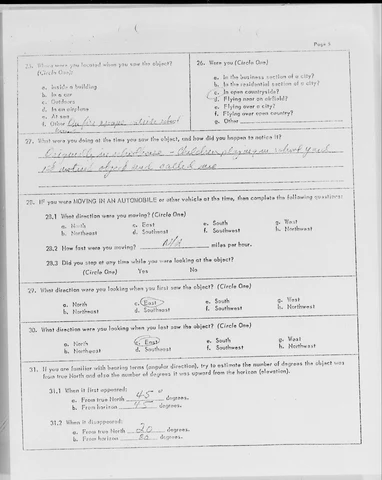 Page 3
25. Where were you located when you saw the object?
(Circle One):
a. Inside a building
b. In a car
c. Outdoors
d. In an airplane
e. At sea
f. Other
26. Were you (Circle One)
a. In the business section of a city?
b. In the residential section of a city?
c. In open countryside?
d. Flying near an airfield?
e. Flying over a city?
f. Flying over open country?
g. Other
27. What were you doing at the time you saw the object, and how did you happen to notice it?
children playing in school yard
object and called me
28. IF you were MOVING IN AN AUTOMOBILE or other vehicle at the time, then complete the following questions:
28.1 What direction were you moving? (Circle One)
a. North c. East e. South g. West
b. Northeast d. Southeast f. Southwest h. Northwest
28.2 How fast were you moving? miles per hour.
28.3 Did you stop at any time while you were looking at the object?
(Circle One) Yes No
29. What direction were you looking when you first saw the object? (Circle One)
a. North c. East e. South g. West
b. Northeast d. Southeast f. Southwest h. Northwest
30. What direction were you looking when you last saw the object? (Circle One)
a. North c. East e. South g. West
b. Northeast d. Southeast f. Southwest h. Northwest
31. If you are familiar with bearing terms (angular direction), try to estimate the number of degrees the object was
from true North and also the number of degrees it was upward from the horizon (elevation).
31.1 When it first appeared:
a. From true North 45 degrees.
b. From horizon 45 degrees.
31.2 When it disappeared:
a. From true North 20 degrees.
b. From horizon 80 degrees.